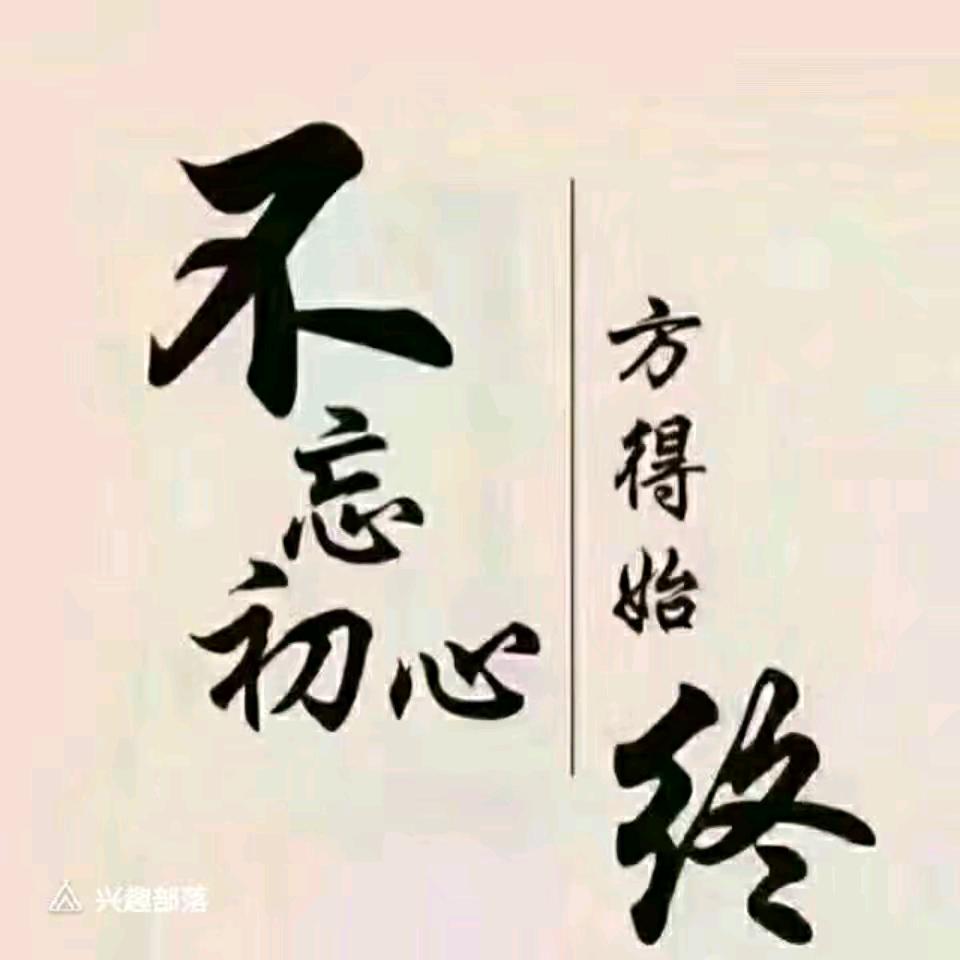 不忘初心
方得始终
兴趣部落